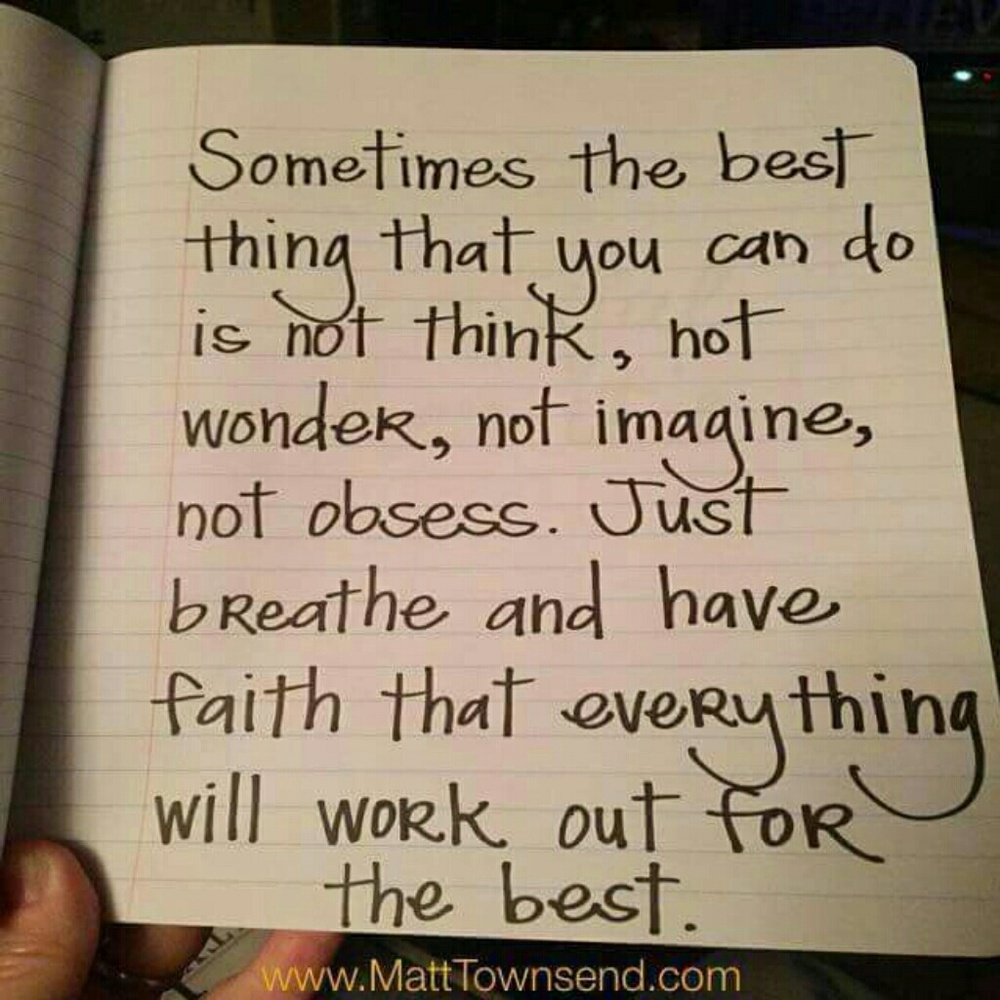 Sometimes the best
thing that you can do
is not think, not
wonder, not imagine,
not obsess. Just
breathe and have
faith that everything
will work out for
the best.
www.MattTownsend.com